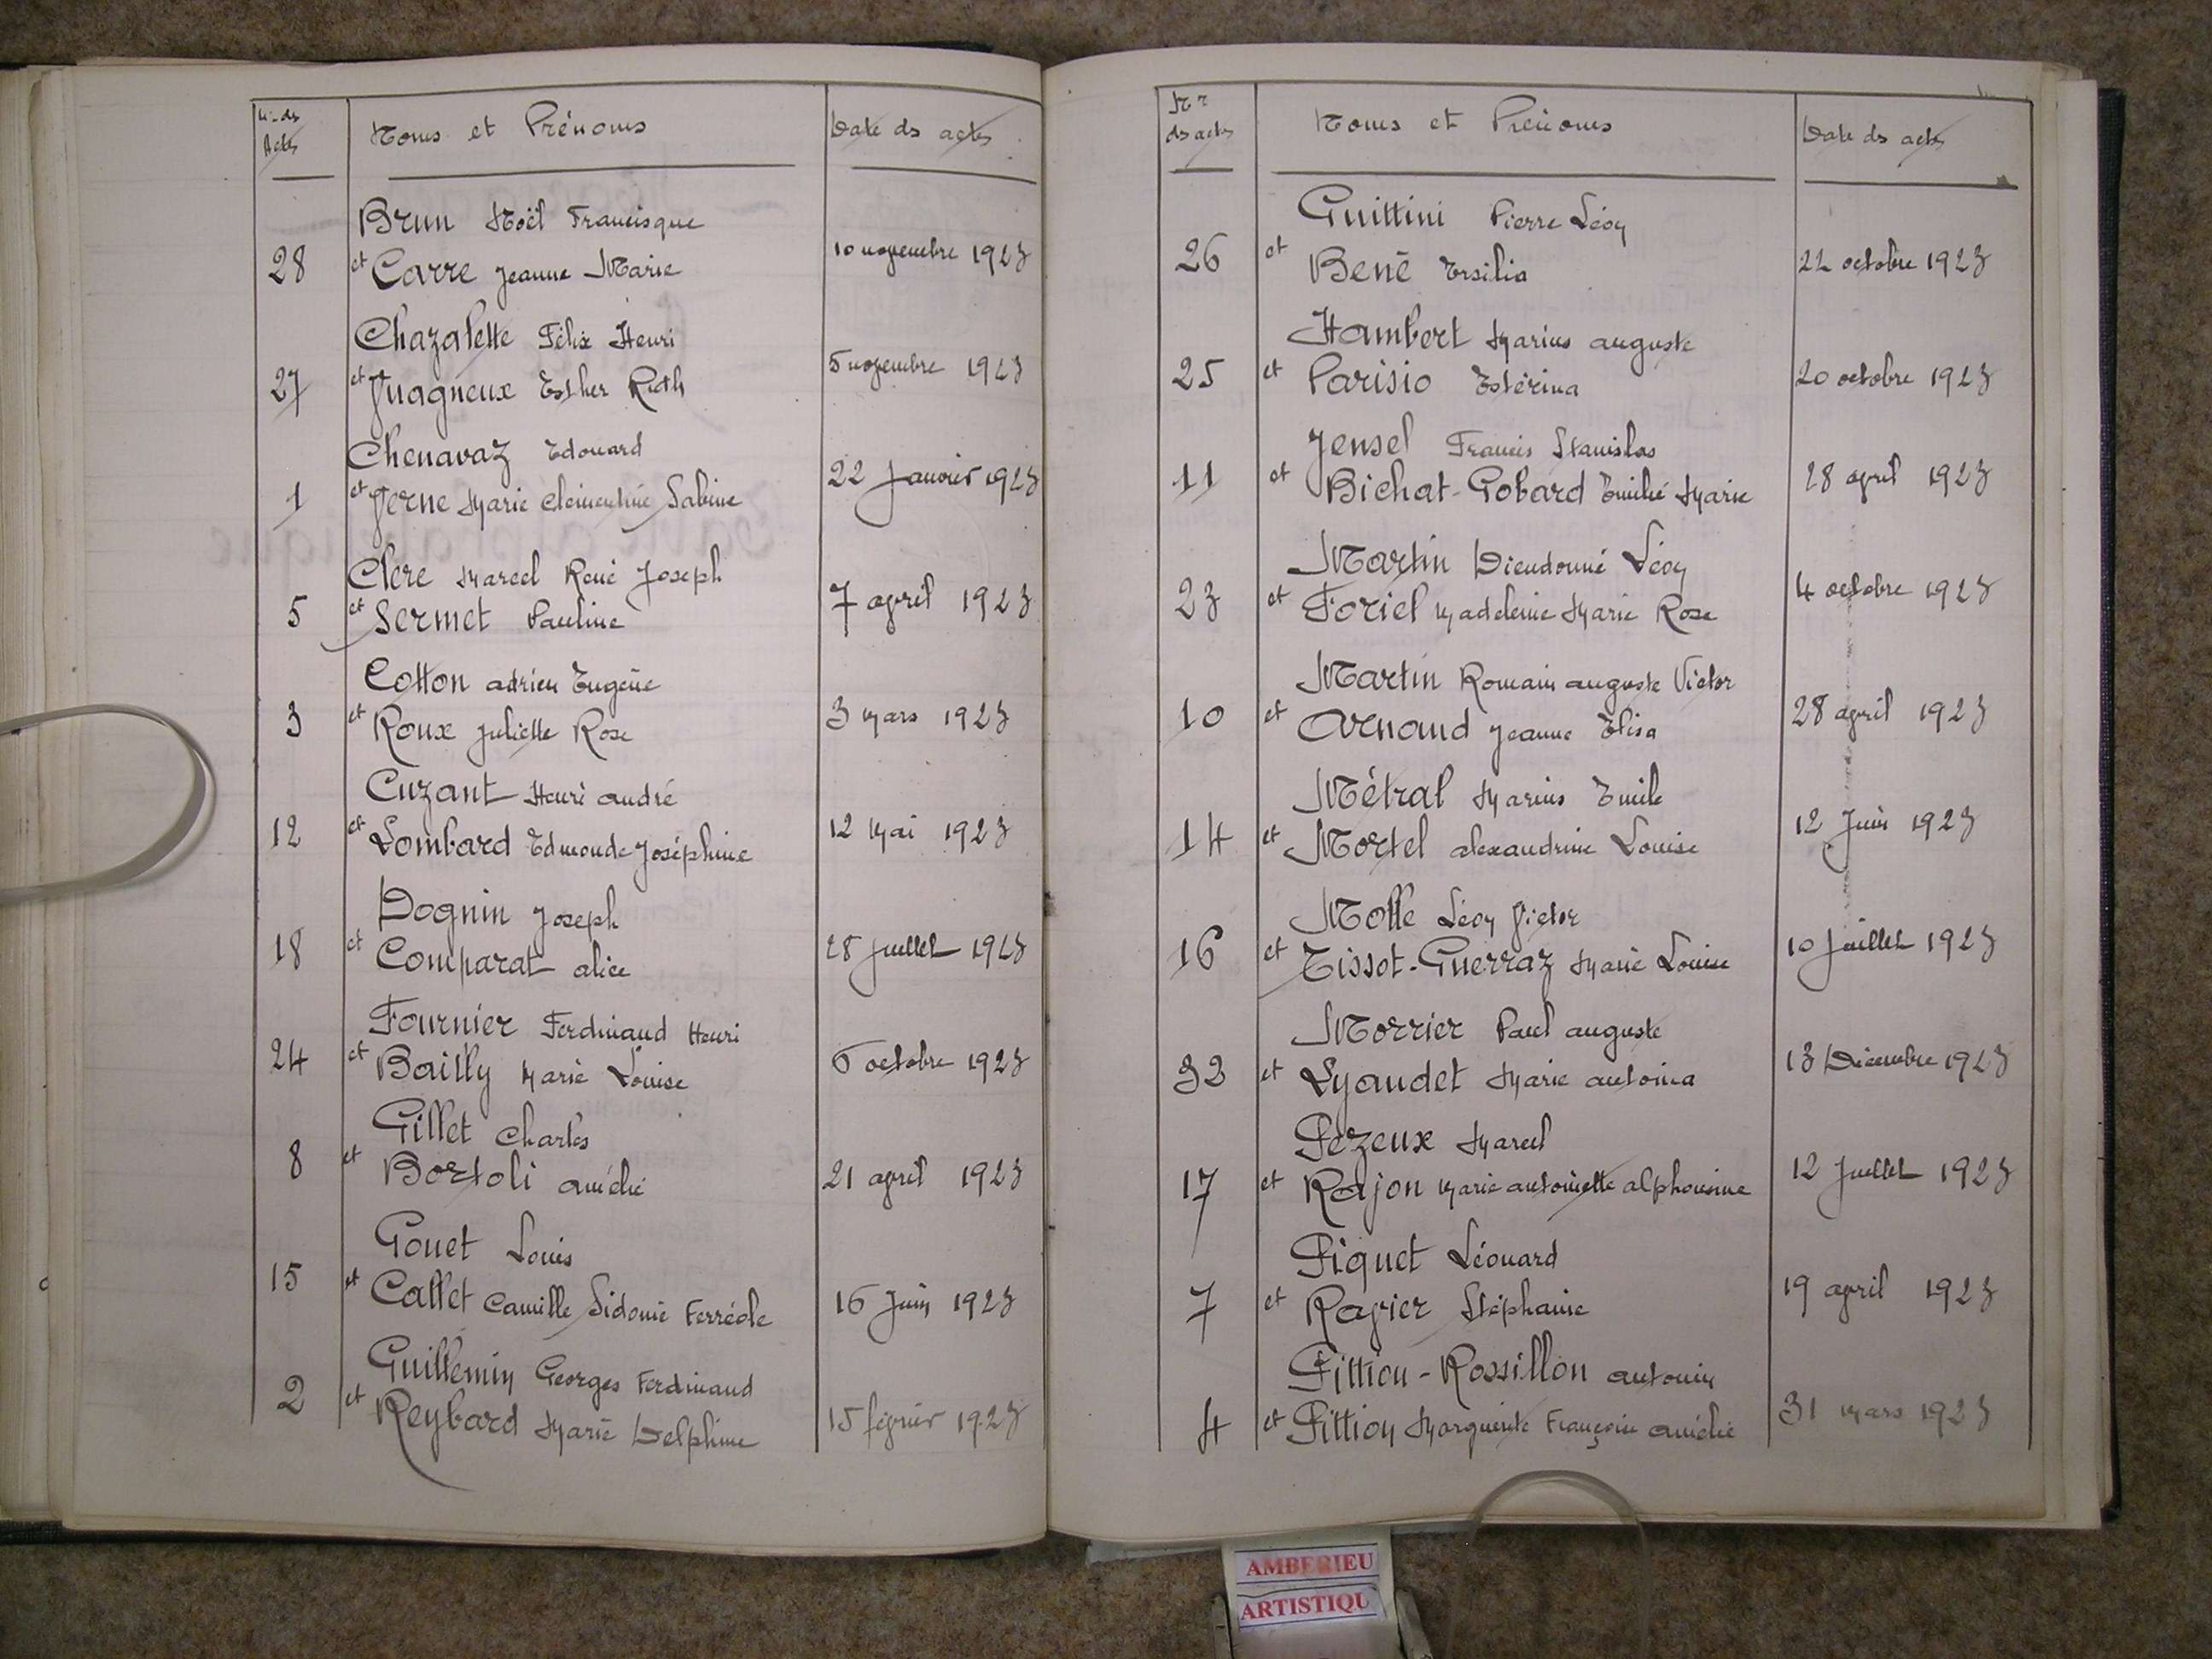 Nos des Actes
Noms et Prénoms
Date des actes
Brun Noël Francisque
28 et Carre Jeanne Marie 10 novembre 1923
Chazalette Félix Henri
27 et Juagneux Esther Ruth 5 novembre 1923
Chenavaz Edouard
1 et Jerne Marie Clémentine Sabine 22 Janvier 1923
Clere Marcel René Joseph
5 et Sermet Pauline 7 avril 1923
Cotton adrien Eugène
3 et Roux Juliette Rose 3 Mars 1923
Cuzant Henri andré
12 et Lombard Edmonde Joséphine 12 Mai 1923
Dognin Joseph
18 et Comparat alice 28 Juillet 1923
Fournier Ferdinand Henri
24 et Bailly Marie Louise 6 octobre 1923
Gillet Charles
8 et Bortoli amélie 21 avril 1923
Gouet Louis
15 et Callet Camille Sidonie Ferréole 16 Juin 1923
Guillemin Georges Ferdinand
2 et Reybard Marie Delphine 15 février 1923
Nos des actes
Noms et Prénoms
Date des actes
Guittini Pierre Léon
26 et Bené Ersilia 22 octobre 1923
Hambert Marius auguste
25 et Parisio Estérina 20 octobre 1923
Jensel Francis Stanislas
11 et Bichat-Gobard Emilie Marie 28 avril 1923
Martin Dieudonné Léon
23 et Foriel Madeleine Marie Rose 4 octobre 1923
Martin Romain auguste Victor
10 et Arnaud Jeanne Elisa 28 avril 1923
Métral Marius Emile
14 et Mortel alexandrine Louise 12 Juin 1923
Molle Léon Victor
16 et Tissot-Guerraz Marie Louise 10 Juillet 1923
Morrier Paul auguste
32 et Lyaudet Marie antonia 13 Décembre 1923
Pezeux Marcel
17 et Rajon Marie antoinette alphonsine 12 Juillet 1923
Piquet Léonard
7 et Ravier Stéphanie 19 avril 1923
Pittion-Rossillon antonin
4 et Pittion Marguerite Françoise amélie 31 Mars 1923
AMBERIEU
ARTISTIQU